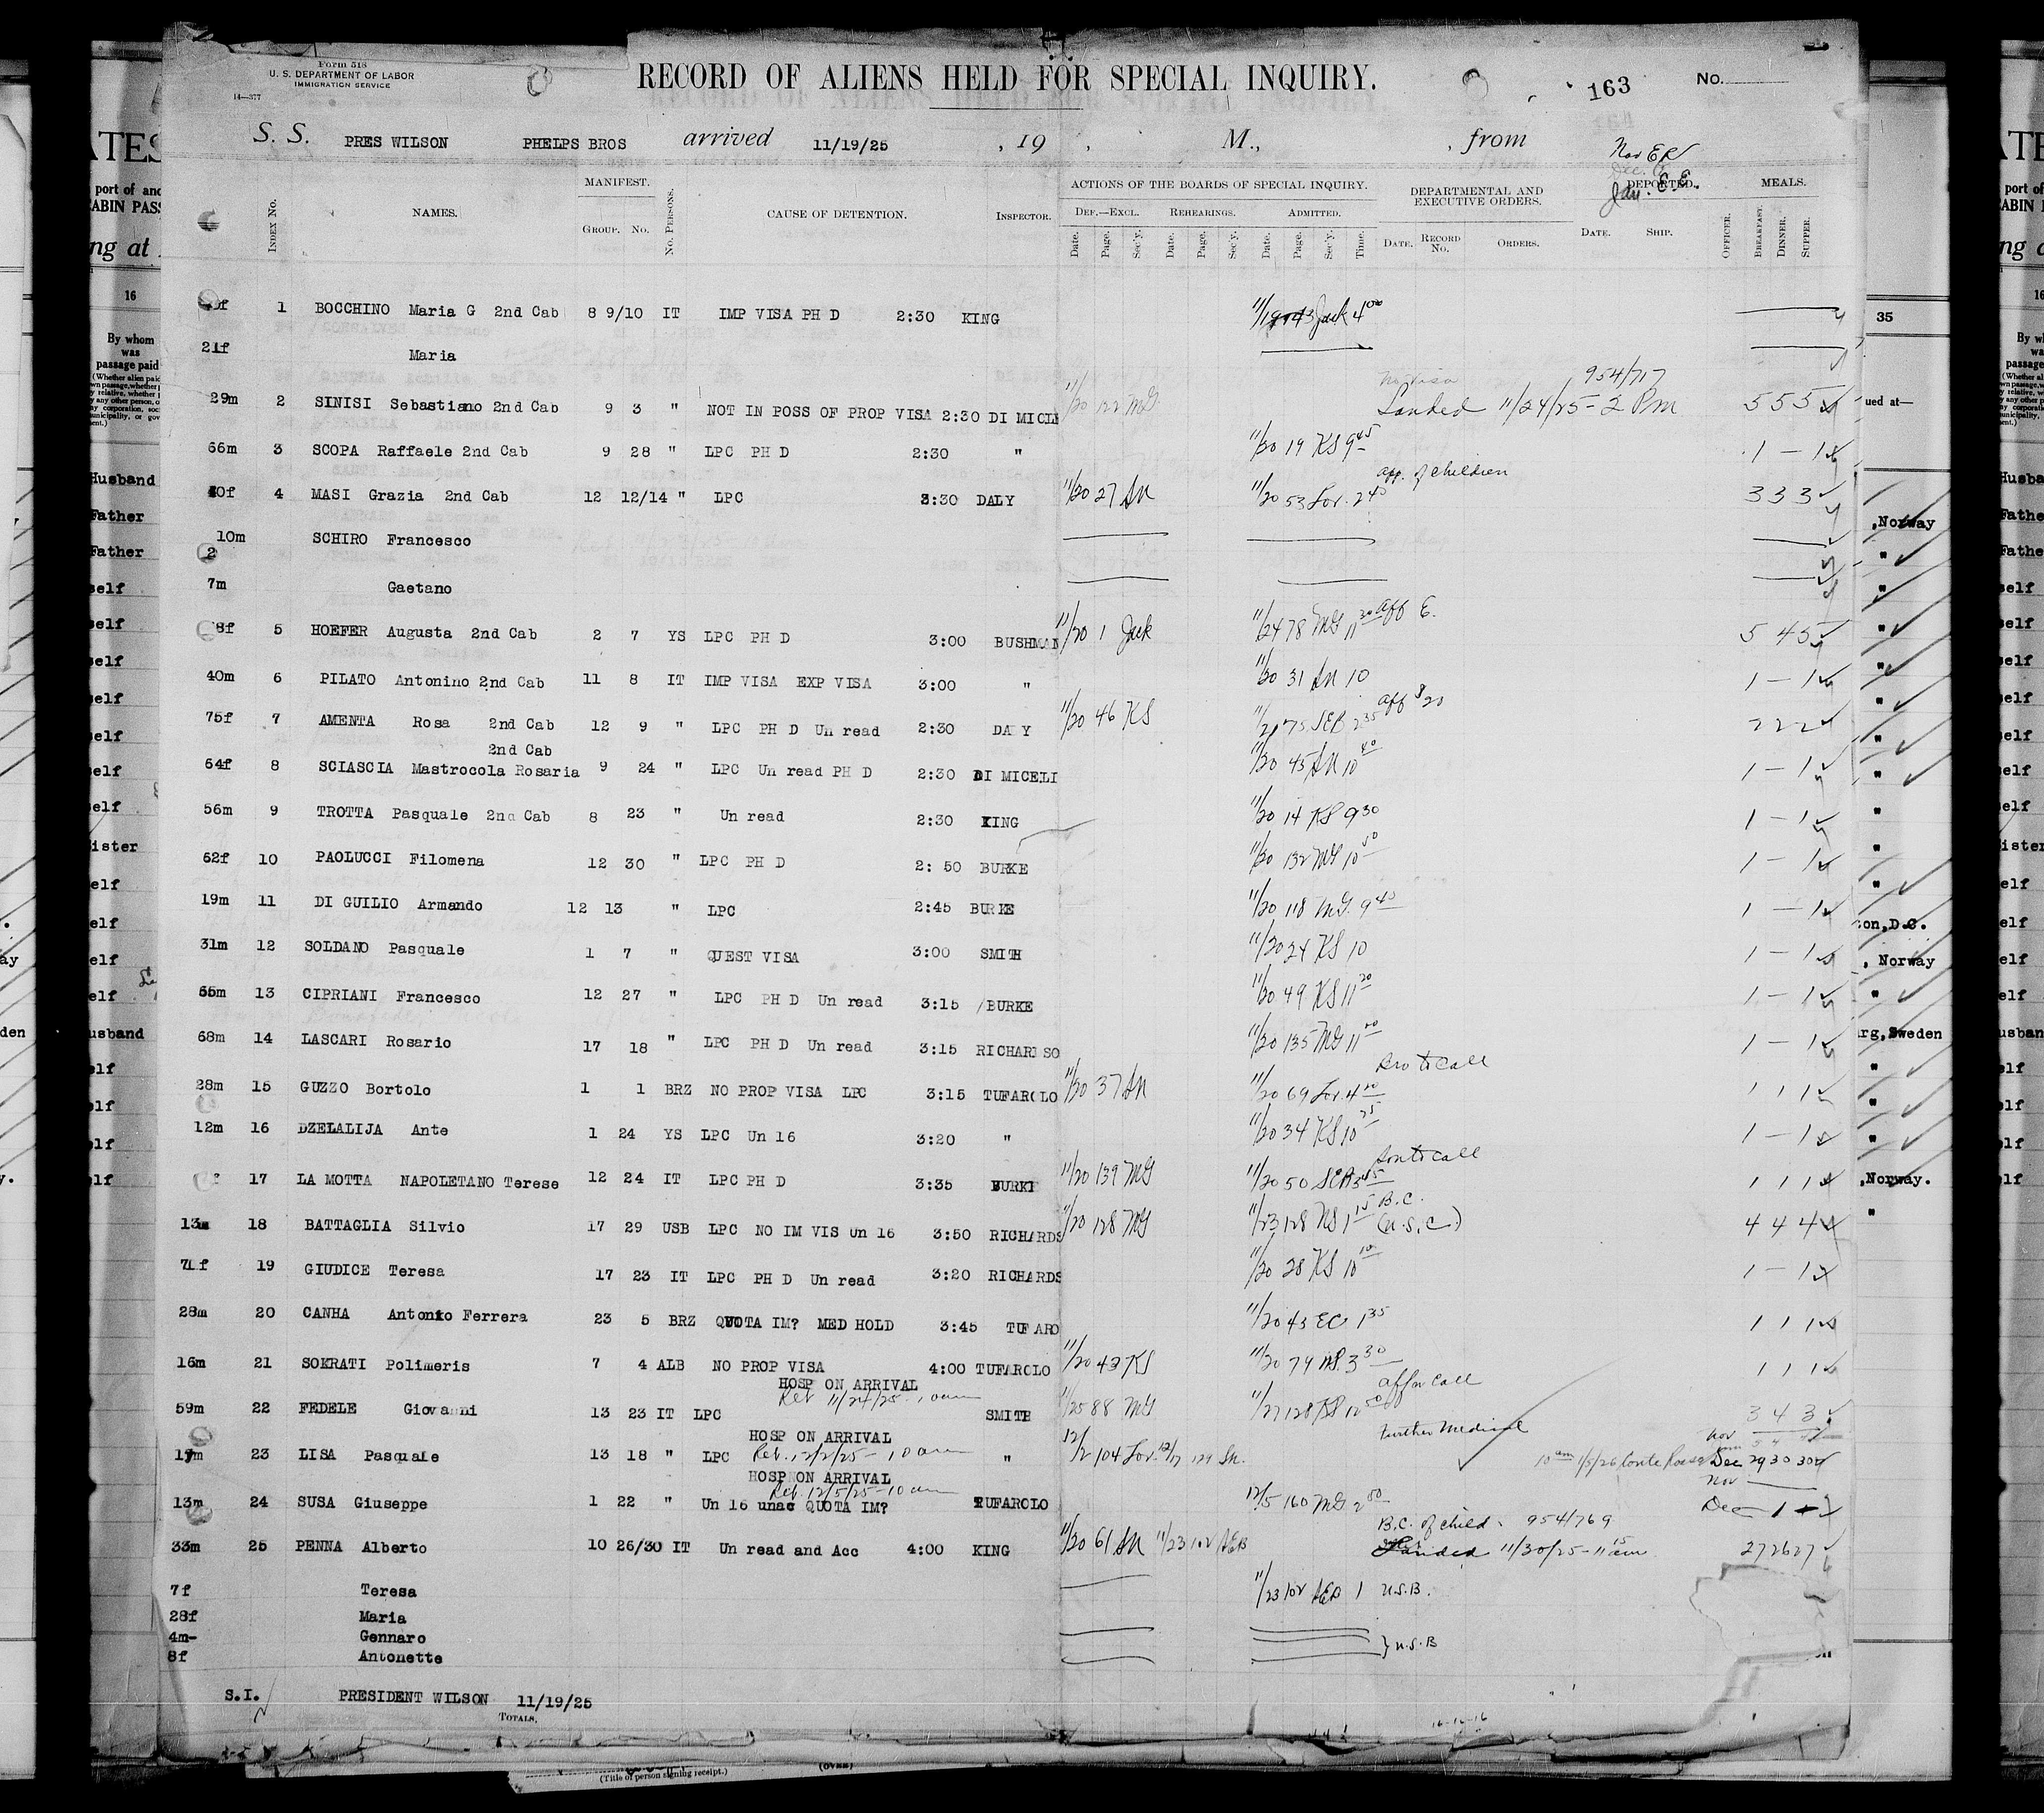 Form 518
U. S. DEPARTMENT OF LABOR
IMMIGRATION SERVICE
14—377
RECORD OF ALIENS HELD FOR SPECIAL INQUIRY.
163
No.
S. S. PRES WILSON PHELPS BROS arrived 11/19/25 , 19 , M., , from
Nov ER
Jan. E.E.
INDEX No.
NAMES.
MANIFEST.
GROUP. No.
No. PERSONS.
CAUSE OF DETENTION.
INSPECTOR.
ACTIONS OF THE BOARDS OF SPECIAL INQUIRY.
DEF.—EXCL. REHEARINGS. ADMITTED.
Date. Page. Sec'y. Date. Page. Sec'y. Date. Page. Sec'y. Time.
DEPARTMENTAL AND EXECUTIVE ORDERS.
DATE. RECORD No. ORDERS.
DEPORTED.
DATE. SHIP.
OFFICER.
MEALS.
BREAKFAST. DINNER. SUPPER.
f 1 BOCCHINO Maria G 2nd Cab 8 9/10 IT IMP VISA PH D 2:30 KING
21f Maria
954/717
29m 2 SINISI Sebastiano 2nd Cab 9 3 " NOT IN POSS OF PROP VISA 2:30 DI MICLE 11/20 122 MG Landed 11/24/25 - 2 Pm 5 5 5
66m 3 SCOPA Raffaele 2nd Cab 9 28 " LPC PH D 2:30 " 11/20 19 KS 9 45 1 — 1
app. of children
40f 4 MASI Grazia 2nd Cab 12 12/14 " LPC 3:30 DALY 11/20 27 SN 11/20 53 Lov. 2 40 3 3 3
10m SCHIRO Francesco
2
7m Gaetano
8f 5 HOEFER Augusta 2nd Cab 2 7 YS LPC PH D 3:00 BUSHMAN 11/20 1 Jack 11/24 78 MG 11 30 aff E. 5 4 5
40m 6 PILATO Antonino 2nd Cab 11 8 IT IMP VISA EXP VISA 3:00 " 11/20 31 SN 10 1 — 1
75f 7 AMENTA Rosa 2nd Cab 12 9 " LPC PH D Un read 2:30 DA Y 11/20 46 KS 11/21 75 SEB 2 35 aff 2 2 2
2nd Cab
64f 8 SCIASCIA Mastrocola Rosaria 9 24 " LPC Un read PH D 2:30 DI MICELI 11/20 45 SN 10 40 1 — 1
56m 9 TROTTA Pasquale 2nd Cab 8 23 " Un read 2:30 KING 11/20 14 KS 9 30 1 — 1
62f 10 PAOLUCCI Filomena 12 30 " LPC PH D 2:50 BURKE 11/20 132 MG 10 50 1 — 1
19m 11 DI GUILIO Armando 12 13 " LPC 2:45 BURKE 11/20 118 MG. 9 40 1 — 1
31m 12 SOLDANO Pasquale 1 7 " QUEST VISA 3:00 SMITH 11/20 24 KS 10 1 — 1
55m 13 CIPRIANI Francesco 12 27 " LPC PH D Un read 3:15 /BURKE 11/20 49 KS 11 20 1 — 1
68m 14 LASCARI Rosario 17 18 " LPC PH D Un read 3:15 RICHARDSO 11/20 135 MG 11 1 — 1
Bro to call
28m 15 GUZZO Bortolo 1 1 BRZ NO PROP VISA LPC 3:15 TUFAROLO 11/20 37 SN 11/20 69 Lov. 4 1 1 1
12m 16 DZELALIJA Ante 1 24 YS LPC Un 16 3:20 " 11/20 34 KS 10 25 1 — 1
Son to call
f 17 LA MOTTA NAPOLETANO Terese 12 24 IT LPC PH D 3:35 BURKE 11/20 139 MG 11/20 50 1 1 1
B.C.
13m 18 BATTAGLIA Silvio 17 29 USB LPC NO IM VIS Un 16 3:50 RICHARDS 11/20 128 MG 11/23 128 1 15 (U.S.C.) 4 4 4
71f 19 GIUDICE Teresa 17 23 IT LPC PH D Un read 3:20 RICHARDS 11/20 28 KS 10 10 1 — 1
28m 20 CANHA Antonio Ferrera 23 5 BRZ QUOTA IM? MED HOLD 3:45 TUFARO 11/20 43 EC 1 35 1 1 1
16m 21 SOKRATI Polimeris 7 4 ALB NO PROP VISA 4:00 TUFAROLO 11/20 43 KS 11/20 74 3 30 1 1 1
HOSP ON ARRIVAL
Ret 11/24/25 - 10 am
59m 22 FEDELE Giovanni 13 23 IT LPC SMITH 11/25 88 MG 11/27 128 KS 3 4 3
HOSP ON ARRIVAL
Further Medical
Nov
17m 23 LISA Pasquale 13 18 " LPC Ret. 12/2/25 - 10 am " 12/2 104 Lov. 12/17 129 SN. 10 am 1/5/26 Dec 29 30 30
HOSP ON ARRIVAL
Ret. 12/5/25 - 10 am
Nov
13m 24 SUSA Giuseppe 1 22 " Un 16 unac QUOTA IM? TUFAROLO 12/5 160 MG 2 Dec — 1
B.C. of child. 954/769
33m 25 PENNA Alberto 10 26/30 IT Un read and Acc 4:00 KING 11/20 61 SN 11/23 102 AEB Landed 11/30/25 - 11 15 am 27 26 27
7f Teresa 11/23 102 AEB 1 U.S.B.
28f Maria
4m- Gennaro
} U.S.B
8f Antonette
S.I. PRESIDENT WILSON 11/19/25
TOTALS,
16-16-16
(Title of person signing receipt.)
(OVER)
ATES
port of and
CABIN PASS
ng at
16
By whom
was
passage paid
Husband
Father
Father
self
self
self
self
self
self
self
ister
elf
elf
elf
elf
usband
elf
elf
elf
elf
35
ued at—
,Norway
ton,D.C.
, Norway
rg,Sweden
,Norway.